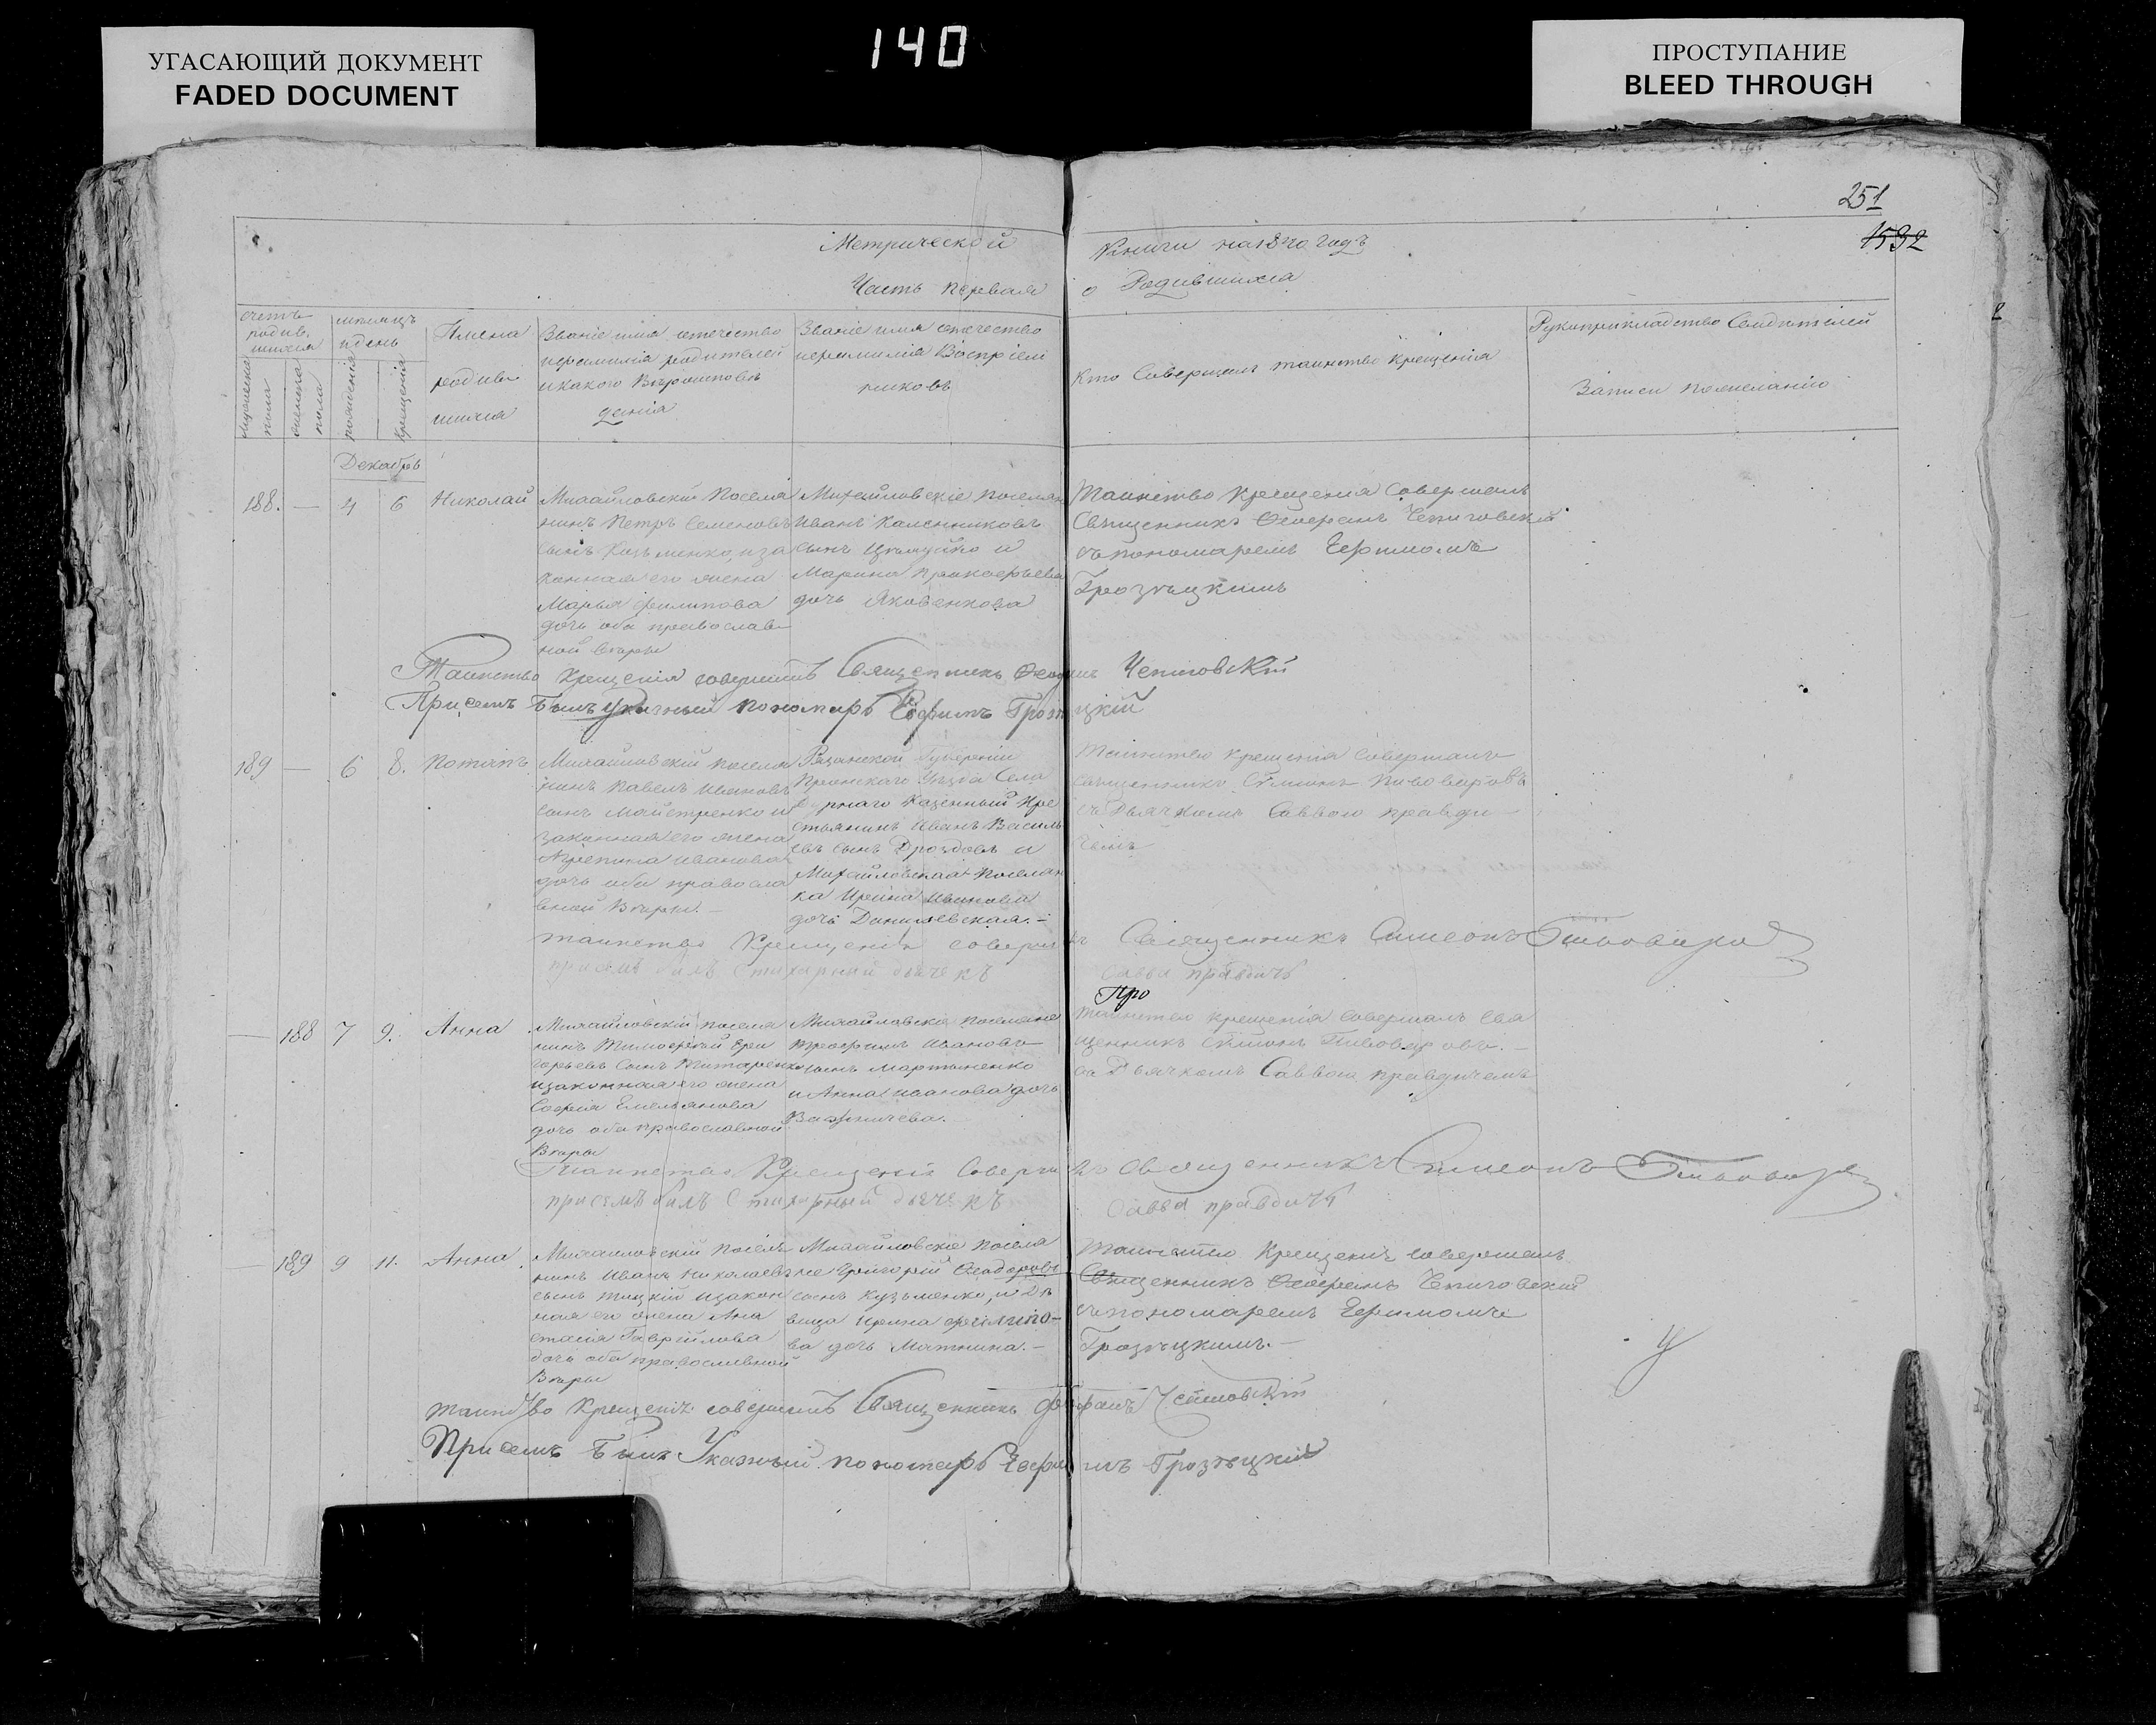 УГАСАЮЩИЙ ДОКУМЕНТ
FADED DOCUMENT
140
ПРОСТУПАНИЕ
BLEED THROUGH
251
1532
Метрической Книги на 1870 годъ
Часть первая о Родившихся
счетъ родив. шихся
мужеска пола
женска пола
месяцъ и день
рождения
крещения
Имена
родив
шихся
Званіе имя отечество
и фамилія родителей
и какого Вероисповѣ
данія
Званіе имя отечество
и фамилія Воспріем
никовъ
Кто Совершалъ таинство крещенія
Рукоприкладство Свидѣтелей
Записи по желанію
Декабрь
188. — 4 6 Николай
Михайловскій Поселя
нинъ Петръ Семеновъ
сынъ Кузьменко, и за
конная его жена
Марья Филипова
дочь оба православ
ной вѣры
Михайловскіе поселян
Иванъ Калениковъ
сынъ и
Марина Прокофьева
дочь Яковенкова
Таинство крещения Совершалъ
Священникъ Феофанъ Чепиговскій
съ пономаремъ Ефимомъ
Грозѣцкимъ
Таинство Крещенія совершилъ Священникъ Феофанъ Чепиговскій
При семъ былъ указный пономарь Ефимъ Грозѣцкій
189 — 6 8. Потапъ
Михайловскій поселя
нинъ Павелъ Ивановъ
сынъ Майстренко и
законная его жена
Агрепина Иванова
дочь оба правосла
вной Вѣры. —
Рязанской Губерніи
Пронскаго Уѣзда Села
Дурнаго Казенный Кре
стьянинъ Иванъ Василь
евъ сынъ Дроздовъ и
Михайловская Поселян
ка Ирина Иванова
дочь Данилевская. —
Таинство крещенія Совершалъ
священникъ Симионъ Пивоваровъ
съ Дьячкомъ Саввою Правди
чемъ
таинство Крещенія соверши лъ Священникъ Симеонъ Пивоваровъ
при семъ билъ Стихарный дьячекъ Савва правдичъ
Про
— 188 7 9. Анна
Михайловскій поселя
нинъ Тимофей Гри
горьевъ Сынъ Титаренко
и законная его жена
Софія Емельянова
дочь оба православной
Вѣры
Михайловскіе поселяне
Трофимъ Ивановъ
сынъ Мартыненко
и Анна Иванова дочь
Таинство крещенія Совершалъ Свя
щенникъ Симионъ Пивоваровъ. —
съ Дьячкомъ Саввою Правдичемъ
Таинство Крещенія Соверши лъ Священникъ Симеонъ Пивоваровъ
при семъ билъ Стихарный дьячекъ Савва правдичъ
— 189 9 11. Анна
Михайловскій Поселя
нинъ Иванъ Николаевъ
сынъ и закон
ная его жена Ана
стасія Гаврилова
дочь оба православной
Вѣры
Михайловскіе Поселя
не Григорій Феодоровъ
сынъ Кузьменко, и Дѣ
вица Ирина Филипо-
ва дочь Мятнина. —
Таинство Крещенія совершалъ
Священникъ Феофанъ Чепиговскій
съ пономаремъ Ефимомъ
Грозѣцкимъ. —
Таинство Крещенія совершилъ Священникъ Феофанъ Чепиговскій
При семъ былъ Указный пономарь Ефимъ Грозѣцкій